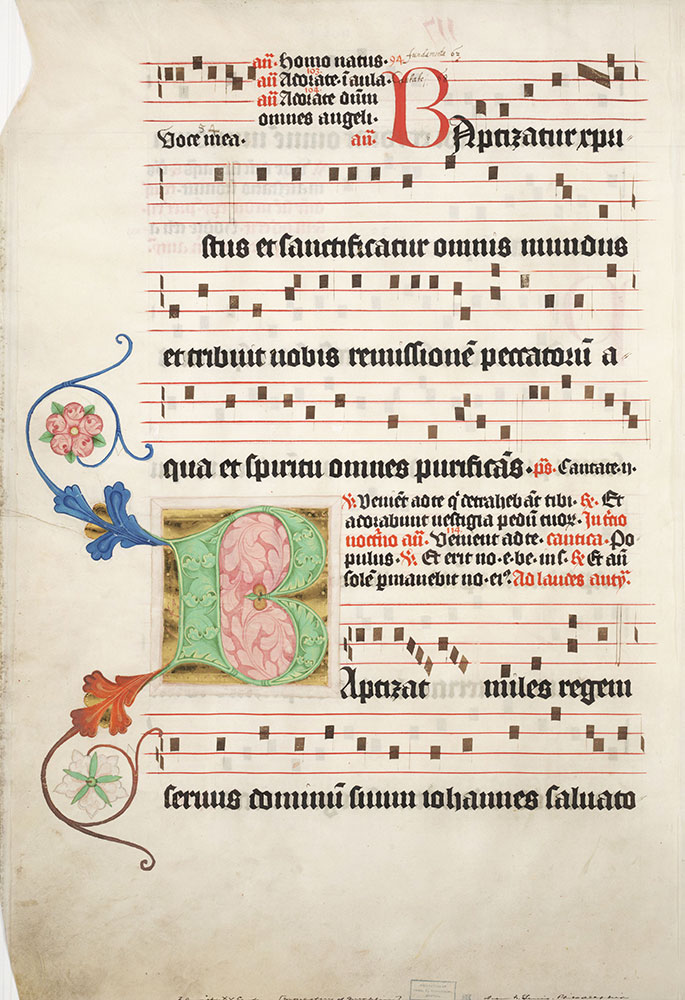 an̄. Homo natus. 94. fundamenta
an̄ Adorate. ī aula. 103
an̄ Adorate dūm 104
omnes angeli.
Voce mea. an̄. BAptizatur xpu
stus et sanctificatur omnis mundus
et tribuit nobis remissionē peccatorū a
qua et spiritu omnes purificās. ps. Cantate. ii.
℣. Veniēt ad te q̄ detraheb āt tibi. ℞. Et
adorabunt vestigia pedū tuoꝝ. In trīo
noct̄no an̄. Venient ad te. cantica. Po 114
pulus. ℣. Et erit no. e. be. in s. ℞ Et an̄
solē pmanebit no. eiꝰ. Ad laudes antꝭ.
BAptizat miles regem
seruus dominū suum iohannes saluato